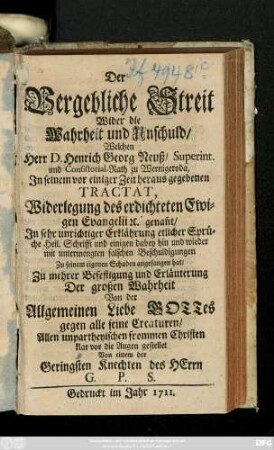 Jf 4948
Der
Vergebliche Streit
Wider die
Wahrheit und Unschuld/
Welchen
Herr D. Henrich Georg Neuß/ Superint.
und Consistorial-Rath zu Wernigeroda,
In seinem vor einiger Zeit heraus gegebenen
TRACTAT,
Widerlegung des erdichteten Ewi-
gen Evangelii ꝛc. genañt/
In sehr unrichtiger Erklährung etlicher Sprü-
che Heil. Schrifft und einigen dabey hin und wieder
mit untermengten falschen Beschuldigungen
Zu seinem eigenen Schaden angefangen hat/
Zu mehrer Befestigung und Erläuterung
Der großen Wahrheit
Von der
Allgemeinen Liebe GOTTes
gegen alle seine Creaturen/
Allen unpartheyischen frommen Christen
klar vor die Augen gestellet
Von einem der
Geringsten Knechten des HErrn
G. P. S.
Gedruckt im Jahr 1711.